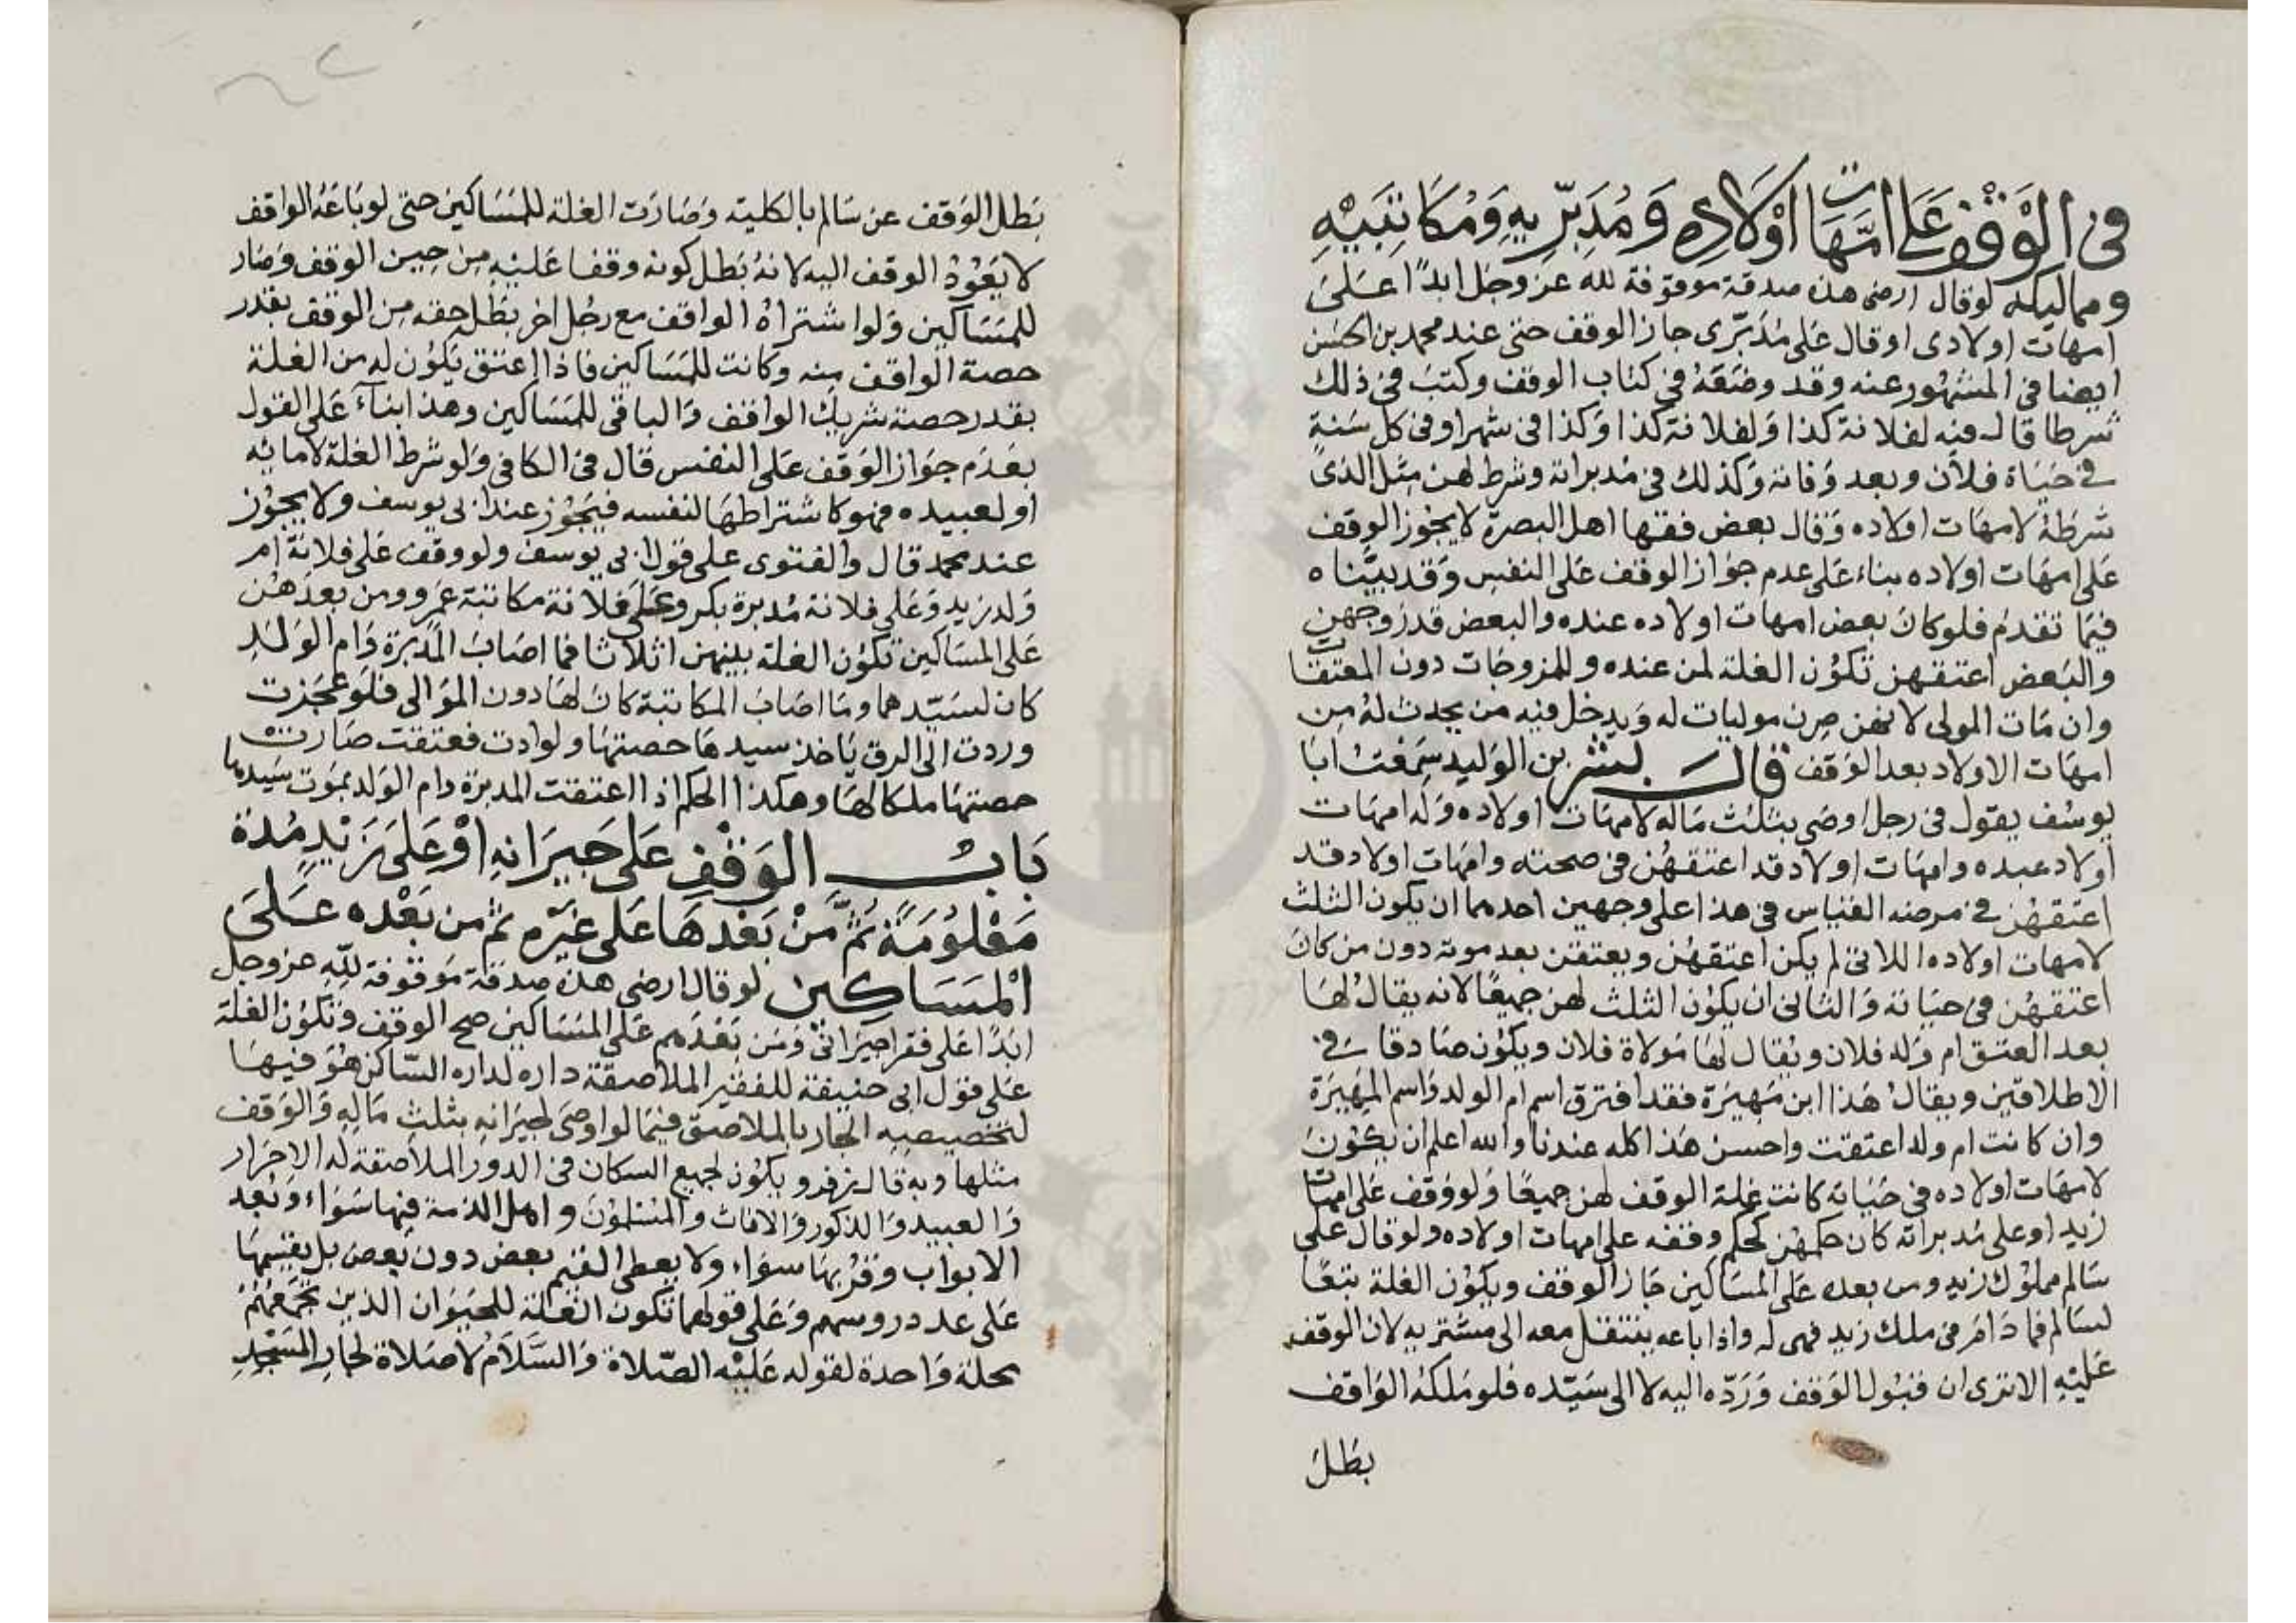 في الوقف على امهات اولاده ومدبريه ومكاتبيه
ومماليكه لوقال ارضى هذه صدقة موقوفة لله عز وجل ابدًا على
امهات اولادى اوقال على مدبّرى جاز الوقف حتى عند محمد بن الحسن
ايضا فى المشهور عنه وقد وضعه فى كتاب الوقف وكتب فى ذلك
شرطا قال فيه لفلانة كذا ولفلانة كذا وكذا فى شهر اوفى كل سنة
فى حياة فلان وبعد وفاته وكذلك فى مدبراته وشرط لهن مثل الذى
شرطه لامهات اولاده وقال بعض فقها اهل البصرة لا يجوز الوقف
على امهات اولاده بناء على عدم جواز الوقف على النفس وقد بيّناه
فيما تقدم فلوكان بعض امهات اولاده عنده والبعض قد زوجهن
والبعض اعتقهن تكون الغلة لمن عنده وللمزوجات دون المعتقات
وان مات المولى لانهن صرن موليات له ويدخل فيه من يحدث له من
امهات الاولاد بعد الوقف قال بشر بن الوليد سمعت ابا
يوسف يقول فى رجل اوصى بثلث ماله لامهات اولاده وله امهات
اولاد عبده وامهات اولاد قد اعتقهن فى صحته وامهات اولاد قد
اعتقهن فى مرضه القياس فى هذا على وجهين احدهما ان يكون الثلث
لامهات اولاده اللاتى لم يكن اعتقهن ويعتقن بعد موته دون من كان
اعتقهن فى حياته والثانى ان يكون الثلث لهن جميعًا لانه يقال لها
بعد العتق ام ولد فلان ويقال لها مولاة فلان ويكون صادقا فى
الاطلاقين ويقال هذا ابن مهيرة فقد افترق اسم ام الولد واسم المهيرة
وان كانت ام ولد اعتقت واحسن هذا كله عندنا والله اعلم ان يكون
لامهات اولاده فى حياته كانت غلة الوقف لهن جميعًا ولو وقف على امهات
زيد او على مدبراته كان حكمهن كحكم وقفه على امهات اولاده ولوقال على
سالم مملوك زيد ومن بعده على المساكين جاز الوقف ويكون الغلة تبعًا
لسالم فما دام فى ملك زيد فهى له واذا باعه ينتقل معه الى مشتريه لان الوقف
عليه الا ترى ان قبول الوقف وردّه اليه لا الى سيّده فلو ملكه الواقف
بطل
بطل الوقف عن سالم بالكلية وصارت الغلة للمساكين حتى لو باعه الواقف
لا يعود الوقف اليه لانه بطل كونه وقفا عليه من حين الوقف وصار
للمساكين ولو اشتراه الواقف مع رجل اخر بطل حقه من الوقف بقدر
حصة الواقف منه وكانت للمساكين فاذا اعتق يكون له من الغلة
بقدر حصة شريك الواقف والباقى للمساكين وهذا بناءً على القول
بعدم جواز الوقف على النفس قال فى الكافى ولو شرط الغلة لامائه
او لعبيده فهو كاشتراطها لنفسه فيجوز عند ابى يوسف ولا يجوز
عند محمد قال والفتوى على قول ابى يوسف ولو وقف على فلانة ام
ولد زيد وعلى فلانة مدبرة بكر وعلى فلانة مكاتبة عمرو ومن بعدهن
على المساكين تكون الغلة بينهن اثلاثا فما اصاب المدبرة وام الولد
كان لسيّدهما وما اصاب المكاتبة كان لها دون الموالى فلو عجزت
وردت الى الرق ياخذ سيدها حصتها ولو ادت فعتقت صارت
حصتها ملكا لها وهكذا الحكم اذا اعتقت المدبرة وام الولد بموت سيدهما
باب الوقف على جيرانه او على زيد مدة
معلومة ثم من بعدها على غيره ثم من بعده على
المساكين لو قال ارضى هذه صدقة موقوفة لله عز وجل
ابدًا على فقرا جيرانى ومن بعدهم على المساكين صح الوقف وتكون الغلة
على قول ابى حنيفة للفقير الملاصقة داره لداره الساكن هو فيها
لتخصيصه الجار بالملاصق فيما لو اوصى لجيرانه بثلث ماله والوقف
مثلها وبه قال زفر ويكون لجميع السكان فى الدور الملاصقة له الاحرار
والعبيد والذكور والاناث والمسلمون واهل الذمة فيها سواء وبعد
الابواب وقربها سواء ولا يعطى القيم بعض دون بعض بل يقسمها
على عدد روسهم وعلى قولهما تكون الغلة للجيران الذين تجمعهم
محلة واحدة لقوله عليه الصلاة والسلام لا صلاة لجار المسجد